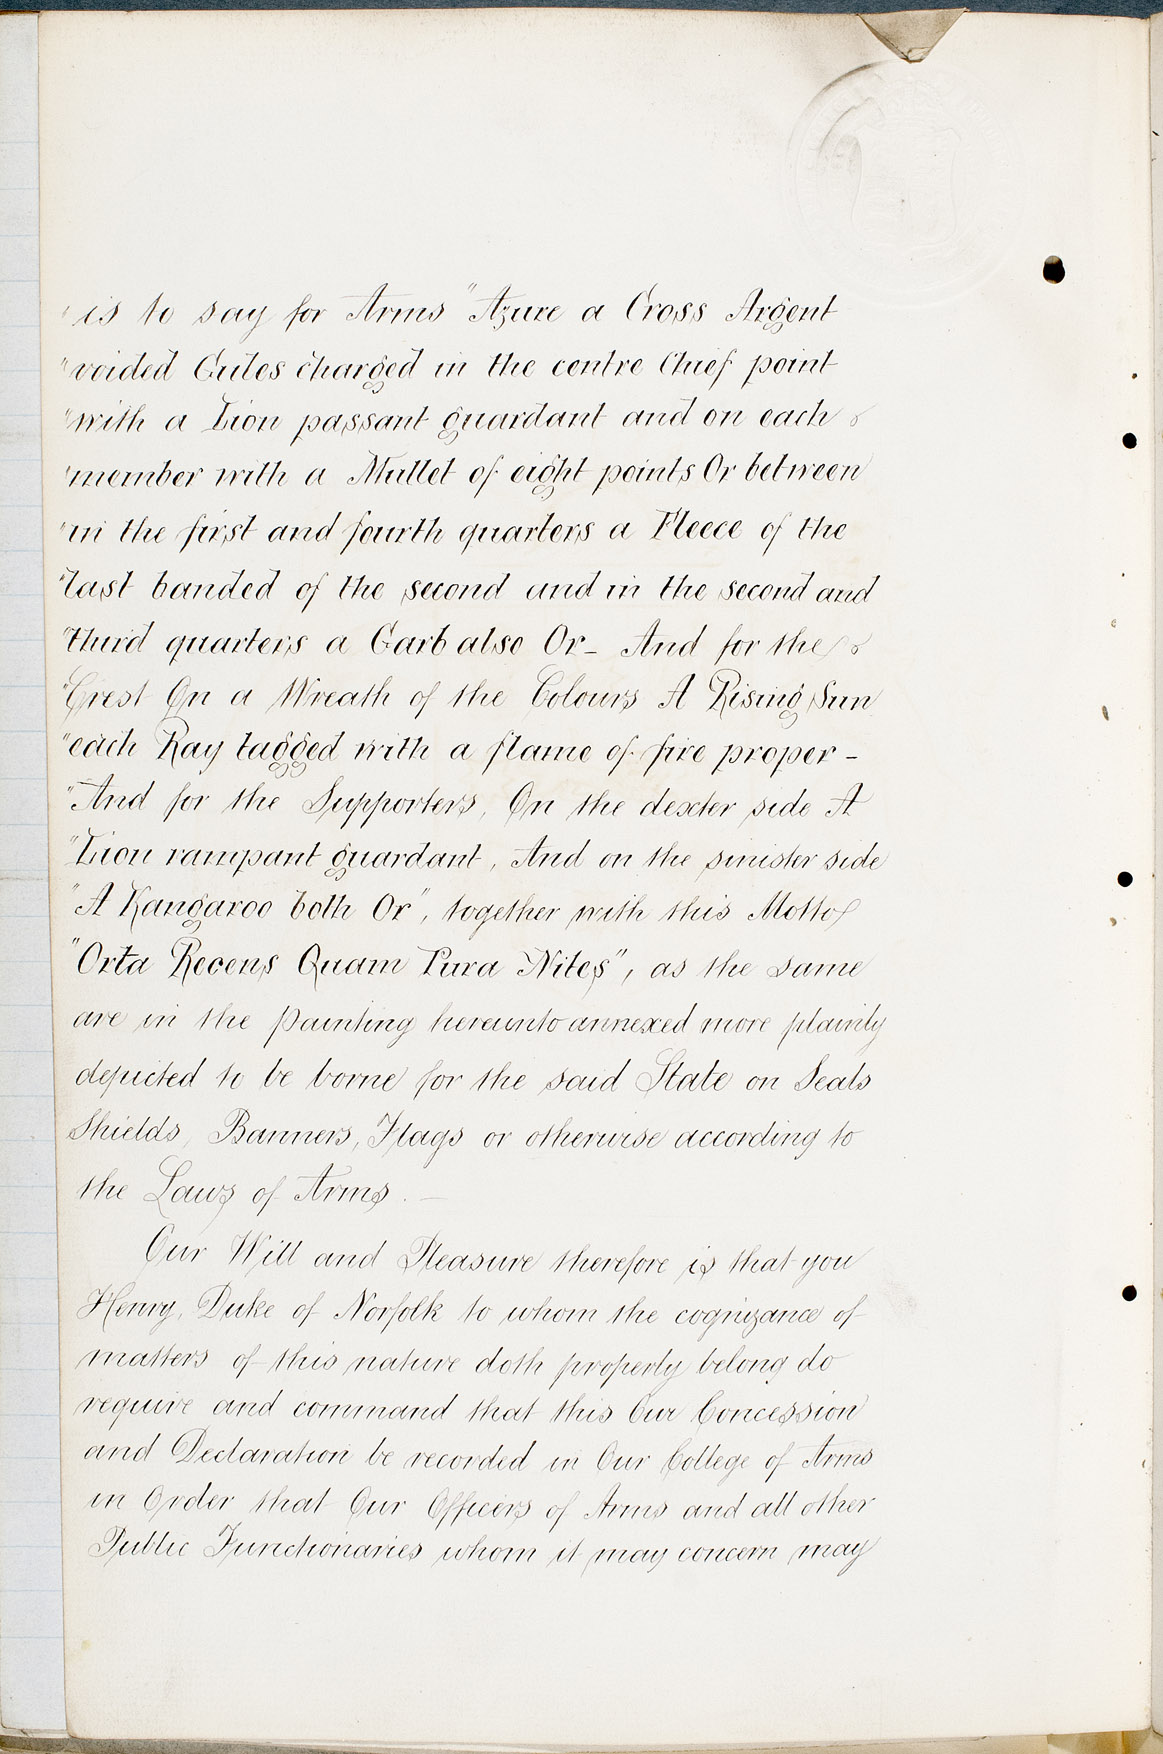 " is to say for Arms "Azure a Cross Argent
"voided Gules charged in the centre Chief point
"with a Lion passant guardant and on each
"member with a Mullet of eight points Or between
"in the first and fourth quarters a Fleece of the
"last banded of the second and in the second and
"third quarters a Garb also Or_ And for the
"Crest On a Wreath of the Colours A Rising Sun
"each Ray tagged with a flame of fire proper -
"And for the Supporters, On the dexter side A
"Lion rampant guardant, And on the sinister side
"A Kangaroo both Or", together with this Motto
"Orta Recens Quam Pura Nites", as the same
are in the Painting hereunto annexed more plainly
depicted to be borne for the said State on Seals
Shields, Banners, Flags or otherwise according to
the Laws of Arms. —
Our Will and Pleasure therefore is that you
Henry, Duke of Norfolk to whom the cognizance of
matters of this nature doth properly belong do
require and command that this Our Concession
and Declaration be recorded in Our College of Arms
in Order that Our Officers of Arms and all other
Public Functionaries whom it may concern may